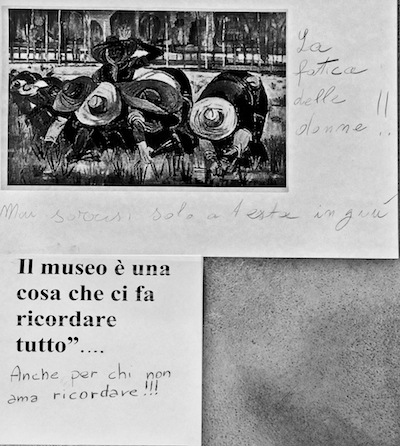 La
fatica
delle
donne!!
Mai sorrisi solo a testa in giù
Il museo è una
cosa che ci fa
ricordare
tutto”....
Anche per chi non
ama ricordare!!!